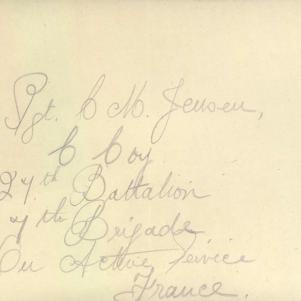 Sgt. C M. Jensen,
C Coy
27th Battalion
7th Brigade
On Active Service
France.